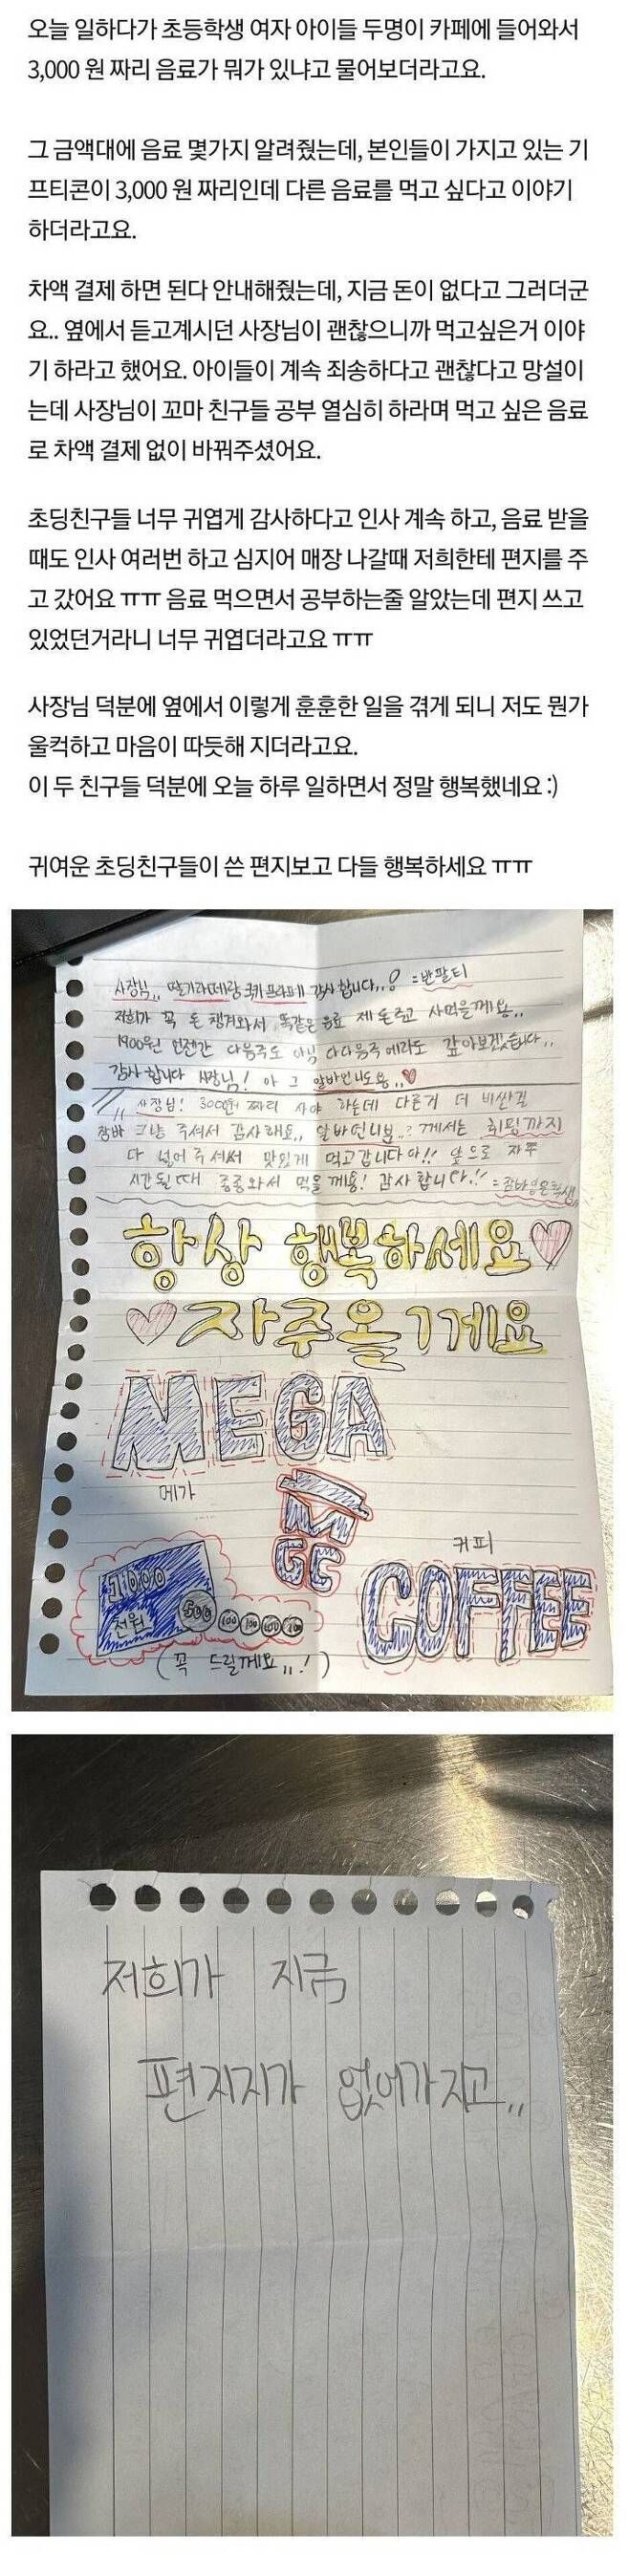 오늘 일하다가 초등학생 여자 아이들 두명이 카페에 들어와서
3,000 원 짜리 음료가 뭐가 있냐고 물어보더라고요.
그 금액대에 음료 몇가지 알려줬는데, 본인들이 가지고 있는 기
프티콘이 3,000 원 짜리인데 다른 음료를 먹고 싶다고 이야기
하더라고요.
차액 결제 하면 된다 안내해줬는데, 지금 돈이 없다고 그러더군
요.. 옆에서 듣고계시던 사장님이 괜찮으니까 먹고싶은거 이야
기 하라고 했어요. 아이들이 계속 죄송하다고 괜찮다고 망설이
는데 사장님이 꼬마 친구들 공부 열심히 하라며 먹고 싶은 음료
로 차액 결제 없이 바꿔주셨어요.
초딩친구들 너무 귀엽게 감사하다고 인사 계속 하고, 음료 받을
때도 인사 여러번 하고 심지어 매장 나갈때 저희한테 편지를 주
고 갔어요 ㅠㅠ 음료 먹으면서 공부하는줄 알았는데 편지 쓰고
있었던거라니 너무 귀엽더라고요 ㅠㅠ
사장님 덕분에 옆에서 이렇게 훈훈한 일을 겪게 되니 저도 뭔가
울컥하고 마음이 따듯해 지더라고요.
이 두 친구들 덕분에 오늘 하루 일하면서 정말 행복했네요 :)
귀여운 초딩친구들이 쓴 편지보고 다들 행복하세요 ㅠㅠ
사장님,, 딸기라떼랑 쿠키프라페 감사합니다..! =반팔티
저희가 꼭 돈 챙겨와서 똑같은 음료 제 돈주고 사먹을께요..
1900원 언젠간 다음주도 아님 다다음주에라도 갚아보겠습니다..
감사합니다 사장님! 아 그 알바언니도용..♥
사장님! 3000원 짜리 사야 하는데 다른거 더 비싼걸
그냥 주셔서 감사해요,, 알바언니분..? 께서는 휘핑까지
다 넣어주셔서 맛있게 먹고갑니다아!! 앞으로 자주
시간될때 종종와서 먹을께용! 감사합니다!!
항상 행복하세요♡
♡자주올게요
MEGA
메가
MGC
커피
COFFEE
1000
천원
500
100
(꼭 드릴께요,,!)
저희가 지금
편지지가 없어가지고..